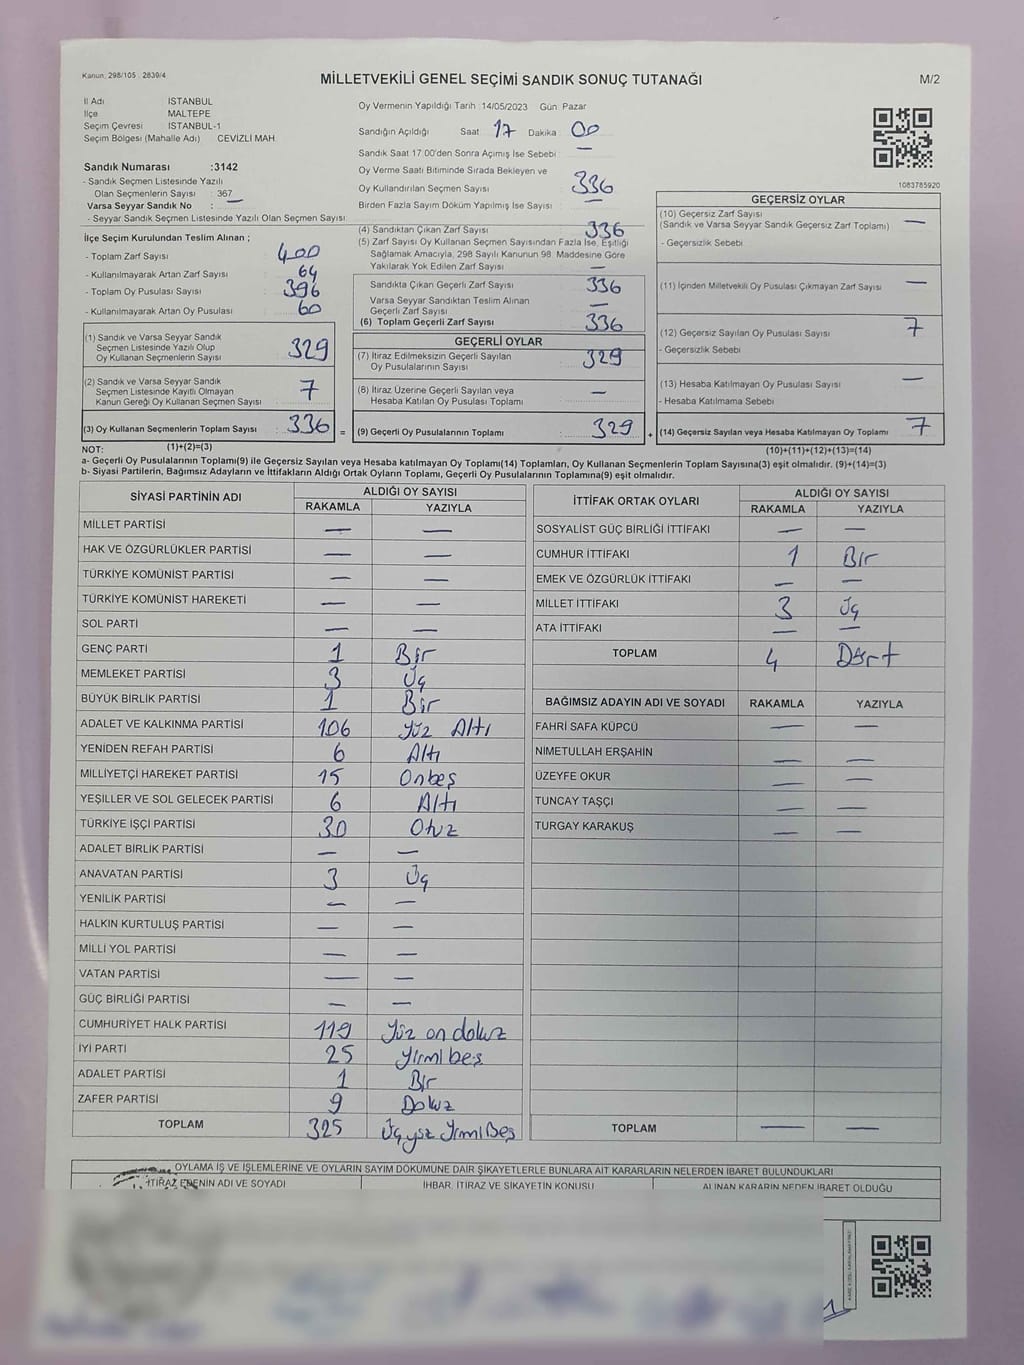 Kanun, 298/105 . 2839/4
MİLLETVEKİLİ GENEL SEÇİMİ SANDIK SONUÇ TUTANAĞI
M/2
İl Adı ISTANBUL
İlçe MALTEPE
Seçim Çevresi ISTANBUL-1
Seçim Bölgesi (Mahalle Adı) CEVİZLİ MAH.
Oy Vermenin Yapıldığı Tarih :14/05/2023 Gün Pazar
Sandığın Açıldığı Saat 17 Dakika 00
Sandık Saat 17 00'den Sonra Açımış İse Sebebi : —
Oy Verme Saati Bitiminde Sırada Bekleyen ve
Oy Kullandırılan Seçmen Sayısı 336
Birden Fazla Sayım Döküm Yapılmış İse Sayısı : —
1083785920
Sandık Numarası :3142
- Sandık Seçmen Listesinde Yazılı
Olan Seçmenlerin Sayısı : 367
Varsa Seyyar Sandık No : —
- Seyyar Sandık Seçmen Listesinde Yazılı Olan Seçmen Sayısı:
İlçe Seçim Kurulundan Teslim Alınan ;
- Toplam Zarf Sayısı : 400
- Kullanılmayarak Artan Zarf Sayısı : 64
- Toplam Oy Pusulası Sayısı : 396
- Kullanılmayarak Artan Oy Pusulası : 60
(1) Sandık ve Varsa Seyyar Sandık
Seçmen Listesinde Yazılı Olup
Oy Kullanan Seçmenlerin Sayısı : 329
(2) Sandık ve Varsa Seyyar Sandık
Seçmen Listesinde Kayıtlı Olmayan
Kanun Gereği Oy Kullanan Seçmen Sayısı : 7
(3) Oy Kullanan Seçmenlerin Toplam Sayısı : 336 =
(4) Sandıktan Çıkan Zarf Sayısı : 336
(5) Zarf Sayısı Oy Kullanan Seçmen Sayısından Fazla İse, Eşitliği
Sağlamak Amacıyla, 298 Sayılı Kanunun 98. Maddesine Göre
Yakılarak Yok Edilen Zarf Sayısı : —
Sandıkta Çıkan Geçerli Zarf Sayısı : 336
Varsa Seyyar Sandıktan Teslim Alınan
Geçerli Zarf Sayısı : —
(6) Toplam Geçerli Zarf Sayısı : 336
GEÇERLİ OYLAR
(7) İtiraz Edilmeksizin Geçerli Sayılan
Oy Pusulalarının Sayısı : 329
(8) İtiraz Üzerine Geçerli Sayılan veya
Hesaba Katılan Oy Pusulası Toplamı : —
(9) Geçerli Oy Pusulalarının Toplamı : 329 +
GEÇERSİZ OYLAR
(10) Geçersiz Zarf Sayısı
(Sandık ve Varsa Seyyar Sandık Geçersiz Zarf Toplamı) : —
- Geçersizlik Sebebi
(11) İçinden Milletvekili Oy Pusulası Çıkmayan Zarf Sayısı : —
(12) Geçersiz Sayılan Oy Pusulası Sayısı : 7
- Geçersizlik Sebebi
(13) Hesaba Katılmayan Oy Pusulası Sayısı : —
- Hesaba Katılmama Sebebi
(14) Geçersiz Sayılan veya Hesaba Katılmayan Oy Toplamı : 7
NOT: (1)+(2)=(3)
(10)+(11)+(12)+(13)=(14)
a- Geçerli Oy Pusulalarının Toplamı(9) ile Geçersiz Sayılan veya Hesaba katılmayan Oy Toplamı(14) Toplamları, Oy Kullanan Seçmenlerin Toplam Sayısına(3) eşit olmalıdır. (9)+(14)=(3)
b- Siyasi Partilerin, Bağımsız Adayların ve İttifakların Aldığı Ortak Oyların Toplamı, Geçerli Oy Pusulalarının Toplamına(9) eşit olmalıdır.
SİYASİ PARTİNİN ADI
ALDIĞI OY SAYISI
RAKAMLA YAZIYLA
MİLLET PARTİSİ — —
HAK VE ÖZGÜRLÜKLER PARTİSİ — —
TÜRKİYE KOMÜNİST PARTİSİ — —
TÜRKİYE KOMÜNİST HAREKETİ — —
SOL PARTİ — —
GENÇ PARTİ 1 Bir
MEMLEKET PARTİSİ 3 Üç
BÜYÜK BİRLİK PARTİSİ 1 Bir
ADALET VE KALKINMA PARTİSİ 106 Yüz Altı
YENİDEN REFAH PARTİSİ 6 Altı
MİLLİYETÇİ HAREKET PARTİSİ 15 Onbeş
YEŞİLLER VE SOL GELECEK PARTİSİ 6 Altı
TÜRKİYE İŞÇİ PARTİSİ 30 Otuz
ADALET BİRLİK PARTİSİ — —
ANAVATAN PARTİSİ 3 Üç
YENİLİK PARTİSİ — —
HALKIN KURTULUŞ PARTİSİ — —
MİLLİ YOL PARTİSİ — —
VATAN PARTİSİ — —
GÜÇ BİRLİĞİ PARTİSİ — —
CUMHURİYET HALK PARTİSİ 119 Yüz on dokuz
İYİ PARTİ 25 Yirmi beş
ADALET PARTİSİ 1 Bir
ZAFER PARTİSİ 9 Dokuz
TOPLAM 325 Üçyüz YirmiBeş
İTTİFAK ORTAK OYLARI
ALDIĞI OY SAYISI
RAKAMLA YAZIYLA
SOSYALİST GÜÇ BİRLİĞİ İTTİFAKI — —
CUMHUR İTTİFAKI 1 Bir
EMEK VE ÖZGÜRLÜK İTTİFAKI — —
MİLLET İTTİFAKI 3 Üç
ATA İTTİFAKI — —
TOPLAM 4 Dört
BAĞIMSIZ ADAYIN ADI VE SOYADI RAKAMLA YAZIYLA
FAHRİ SAFA KÜPCÜ — —
NİMETULLAH ERŞAHİN — —
ÜZEYFE OKUR — —
TUNCAY TAŞÇI — —
TURGAY KARAKUŞ — —
TOPLAM — —
OYLAMA İŞ VE İŞLEMLERİNE VE OYLARIN SAYIM DÖKÜMÜNE DAİR ŞİKAYETLERLE BUNLARA AİT KARARLARIN NELERDEN İBARET BULUNDUKLARI
İTİRAZ EDENİN ADI VE SOYADI
İHBAR, İTİRAZ VE ŞİKAYETİN KONUSU
ALINAN KARARIN NEDEN İBARET OLDUĞU